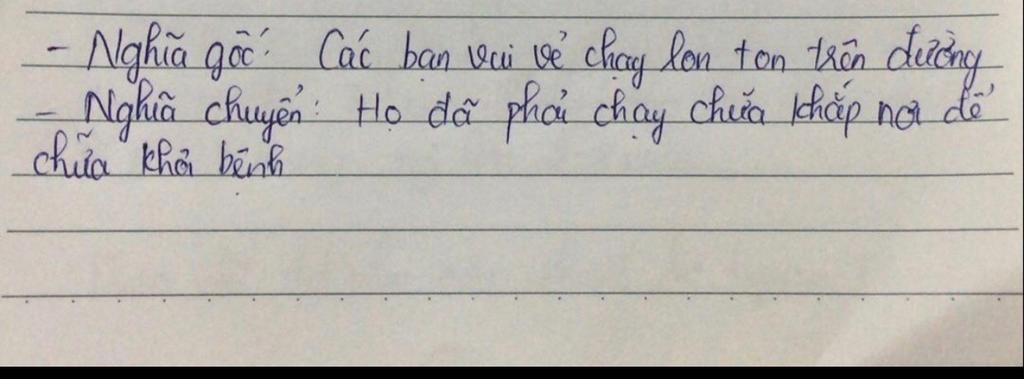 - Nghĩa gốc: Các bạn vui vẻ chạy lon ton trên đường
- Nghĩa chuyển: Họ đã phải chạy chữa khắp nơi để
chữa khỏi bệnh